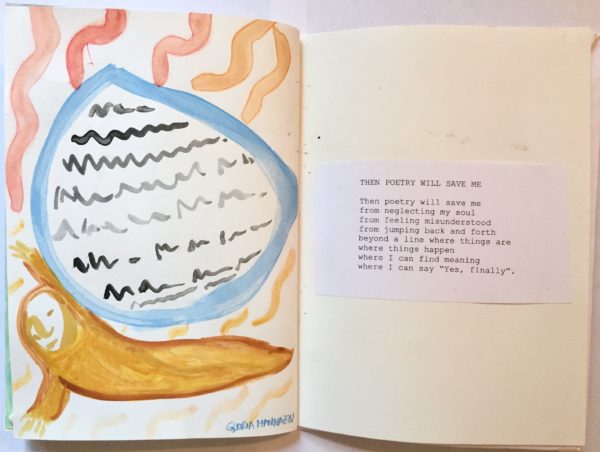 THEN POETRY WILL SAVE ME
Then poetry will save me
from neglecting my soul
from feeling misunderstood
from jumping back and forth
beyond a line where things are
where things happen
where I can find meaning
where I can say “Yes, finally”.